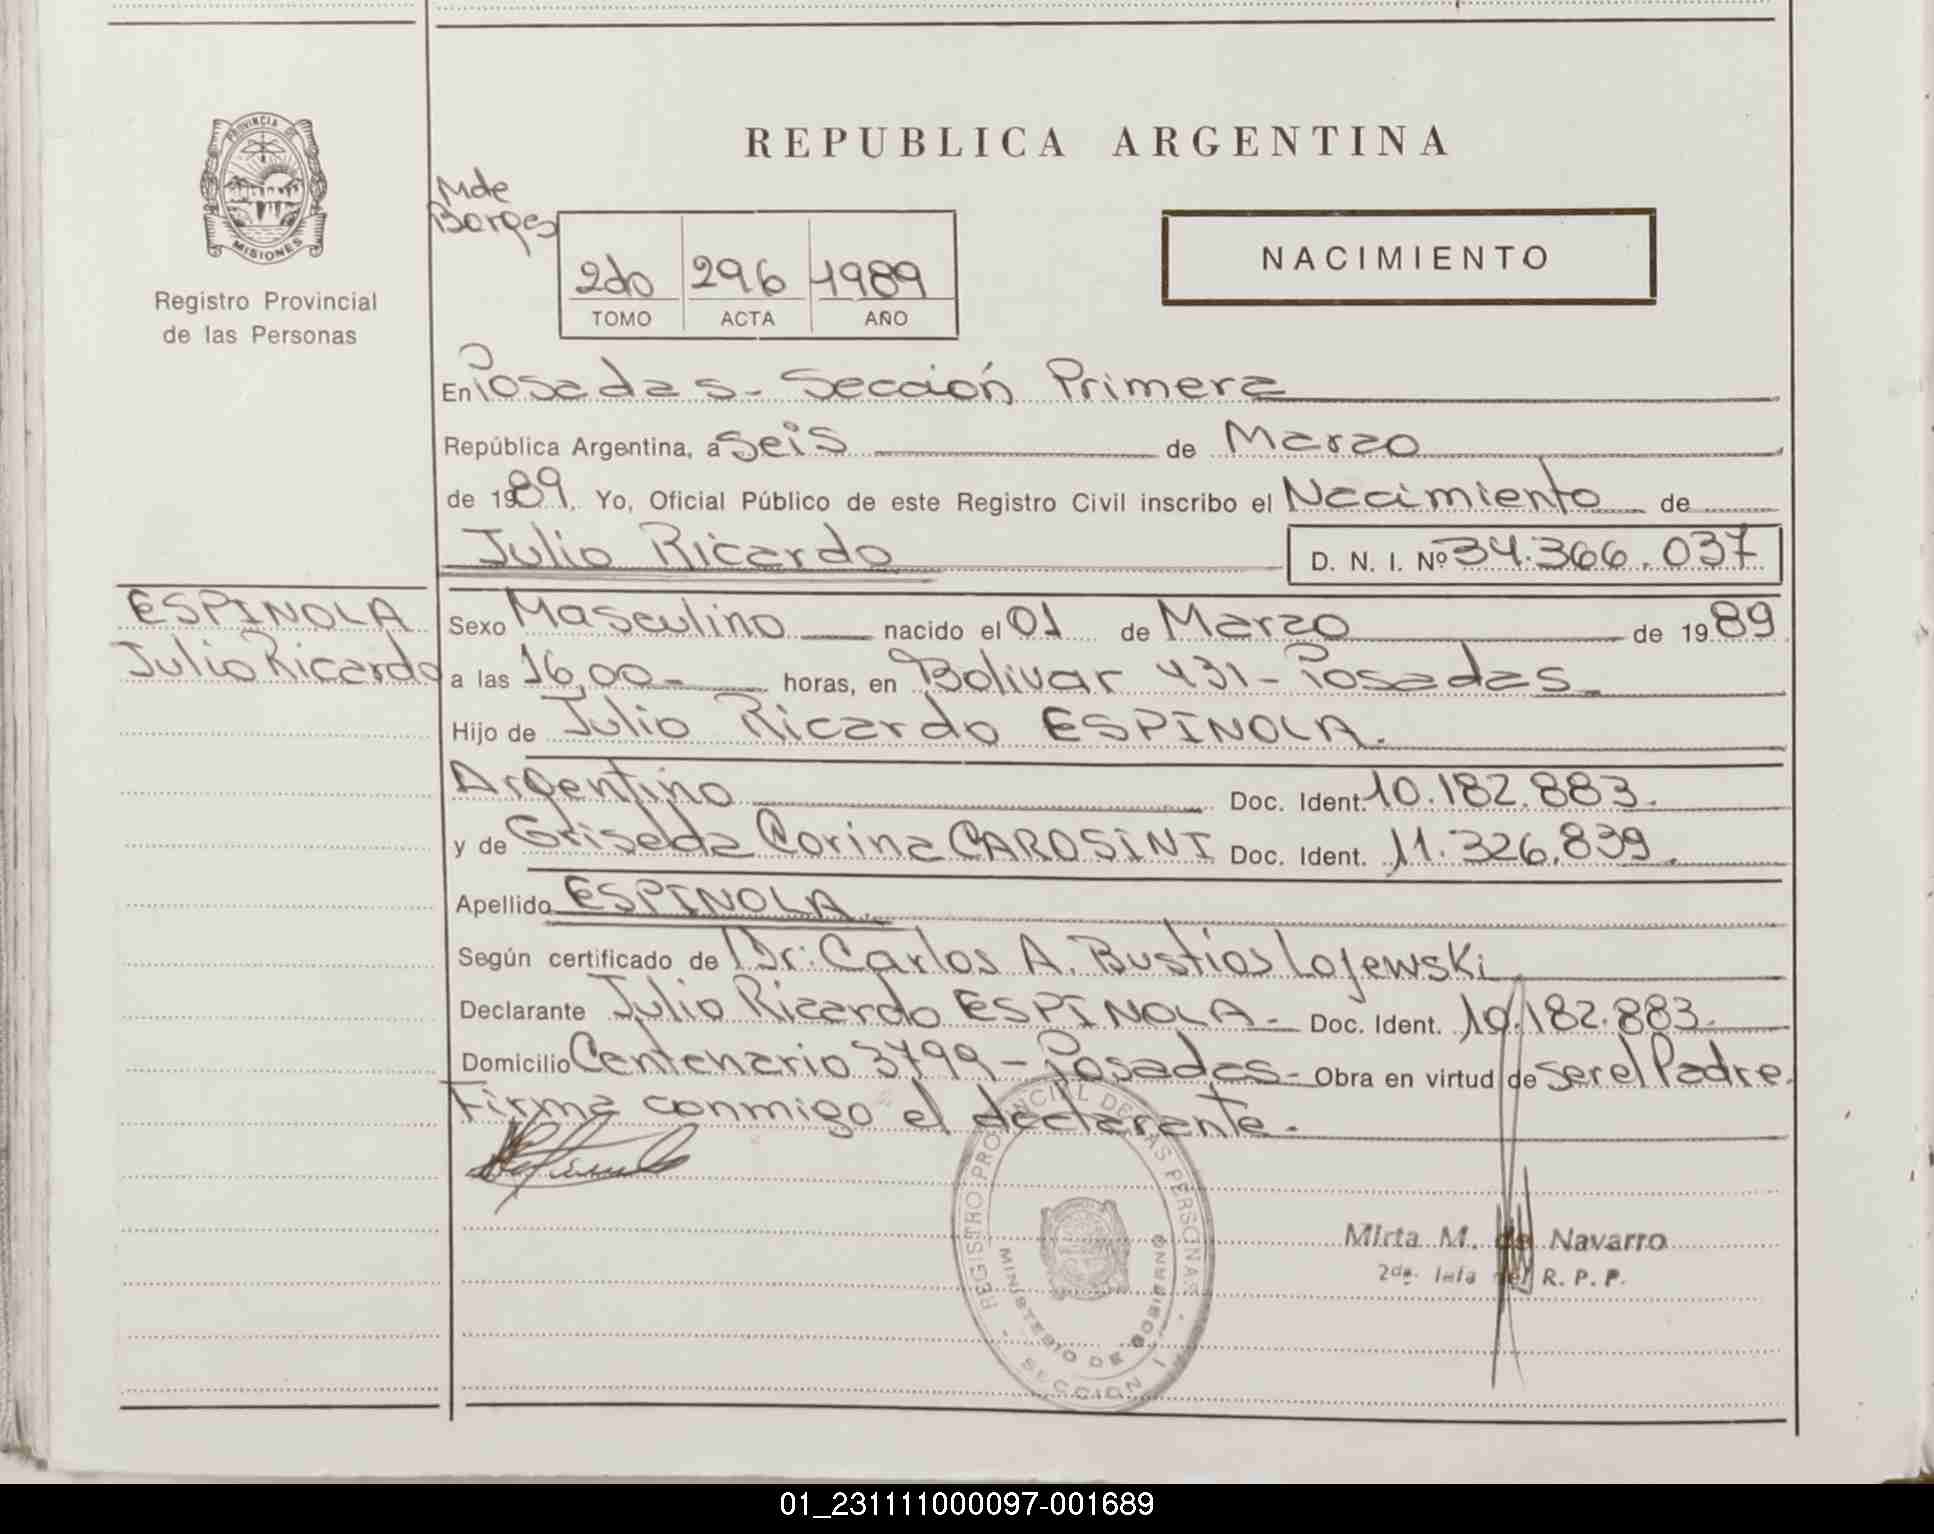 PROVINCIA DE
MISIONES
Registro Provincial
de las Personas
REPUBLICA ARGENTINA
Mde
Borges
2do 296 1989
TOMO ACTA AÑO
NACIMIENTO
En Posadas - Sección Primera
República Argentina, a Seis de Marzo
de 1989. Yo, Oficial Público de este Registro Civil inscribo el Nacimiento de
Julio Ricardo D. N. I. Nº 34.366.037
ESPINOLA
Julio Ricardo
Sexo Masculino nacido el 01 de Marzo de 1989
a las 16,00 - horas, en Bolivar 431 - Posadas
Hijo de Julio Ricardo ESPINOLA.
Argentino Doc. Ident. 10.182.883.
y de Griselda Corina CAROSINI Doc. Ident. 11.326.839.
Apellido ESPINOLA.
Según certificado de Dr: Carlos A. Bustios Lojewski
Declarante Julio Ricardo ESPINOLA - Doc. Ident. 10.182.883.
Domicilio Centenario 3799 - Posadas - Obra en virtud de ser el Padre.
Firma conmigo el declarante.
REGISTRO PROVINCIAL DE LAS PERSONAS
MINISTERIO DE GOBIERNO
SECCION I
Mirta M. de Navarro
2da. Jefa del R. P. P.
01_231111000097-001689